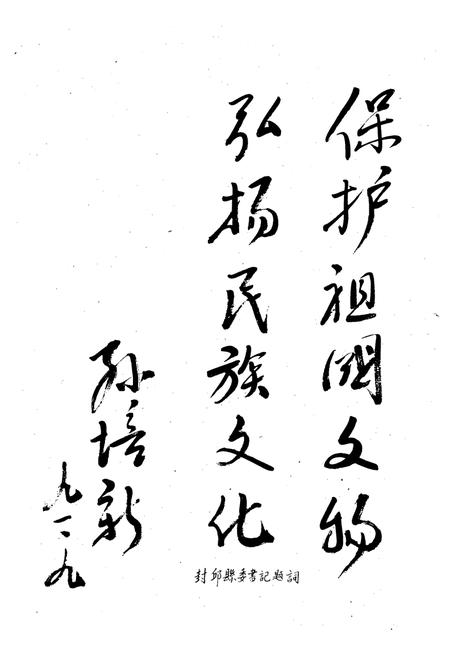 保护祖国文物
弘扬民族文化
孙培新
九一、九
封邱縣委書記題詞